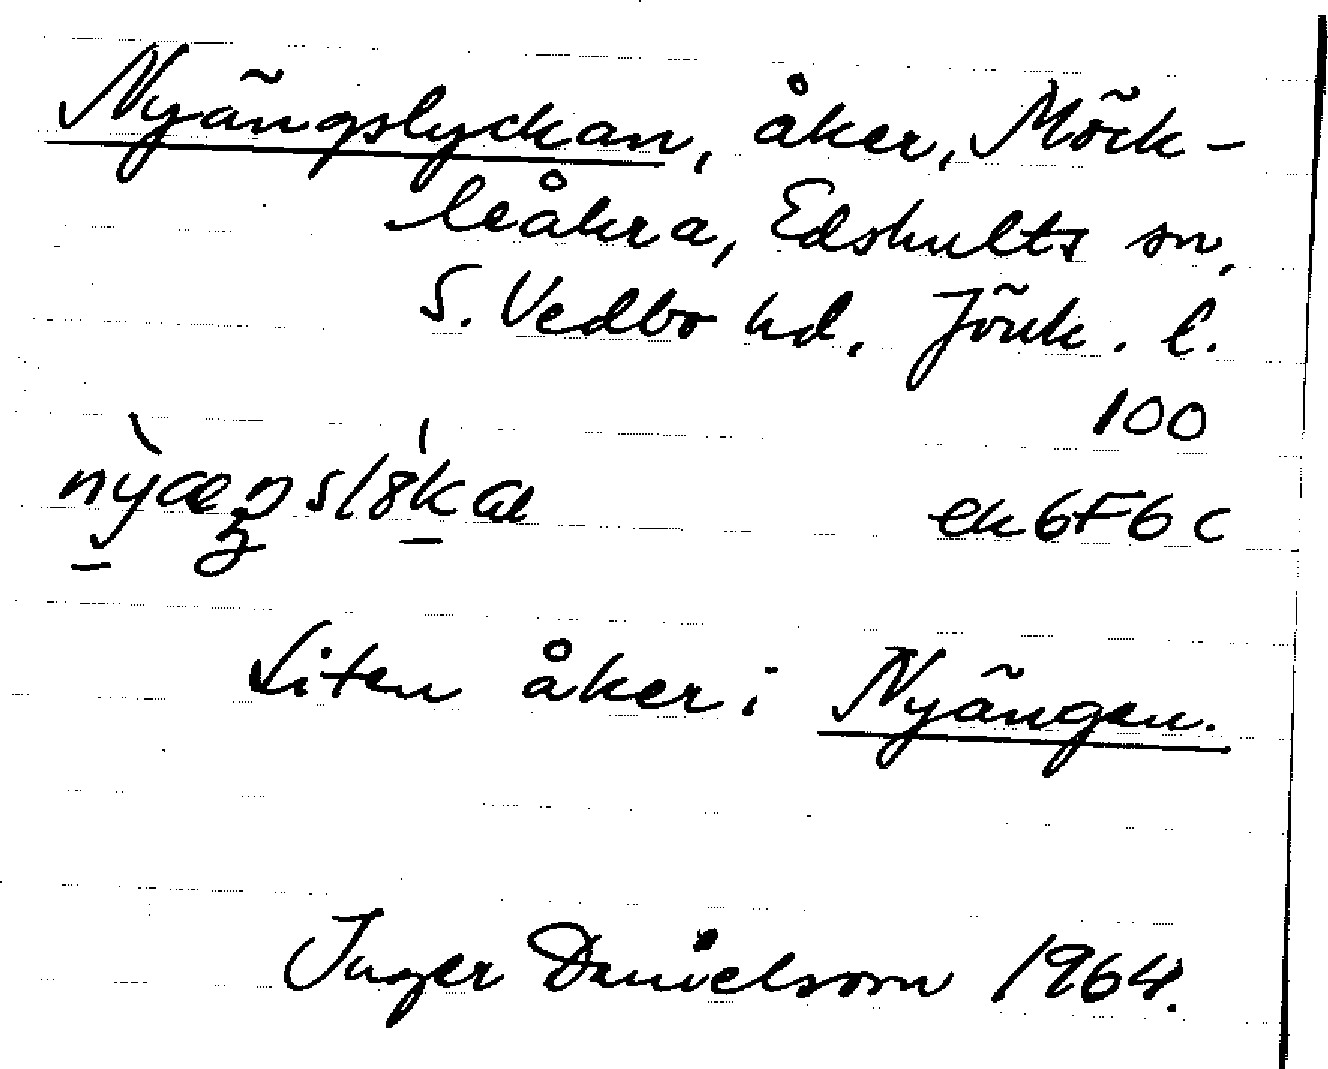 Nyängslyckan, åker, Möck-
leåkra, Edshults sn,
S. Vedbo hd. Jönk. l.
100
ek6F6c
Liten åker i Nyängen.
Inger Danielsson 1964.